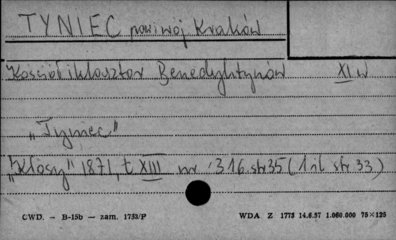 TYNIEC pow i woj Kraków
Kościół i klasztor Benedyktynów XI w
„Tyniec"
„Kłosy" 1871, t XIII nr 316 str 35 (1 il str 33)
CWD. — B-15b — zam. 1753/P WDA Z 1775 14.6.57 1.060.000 75×125